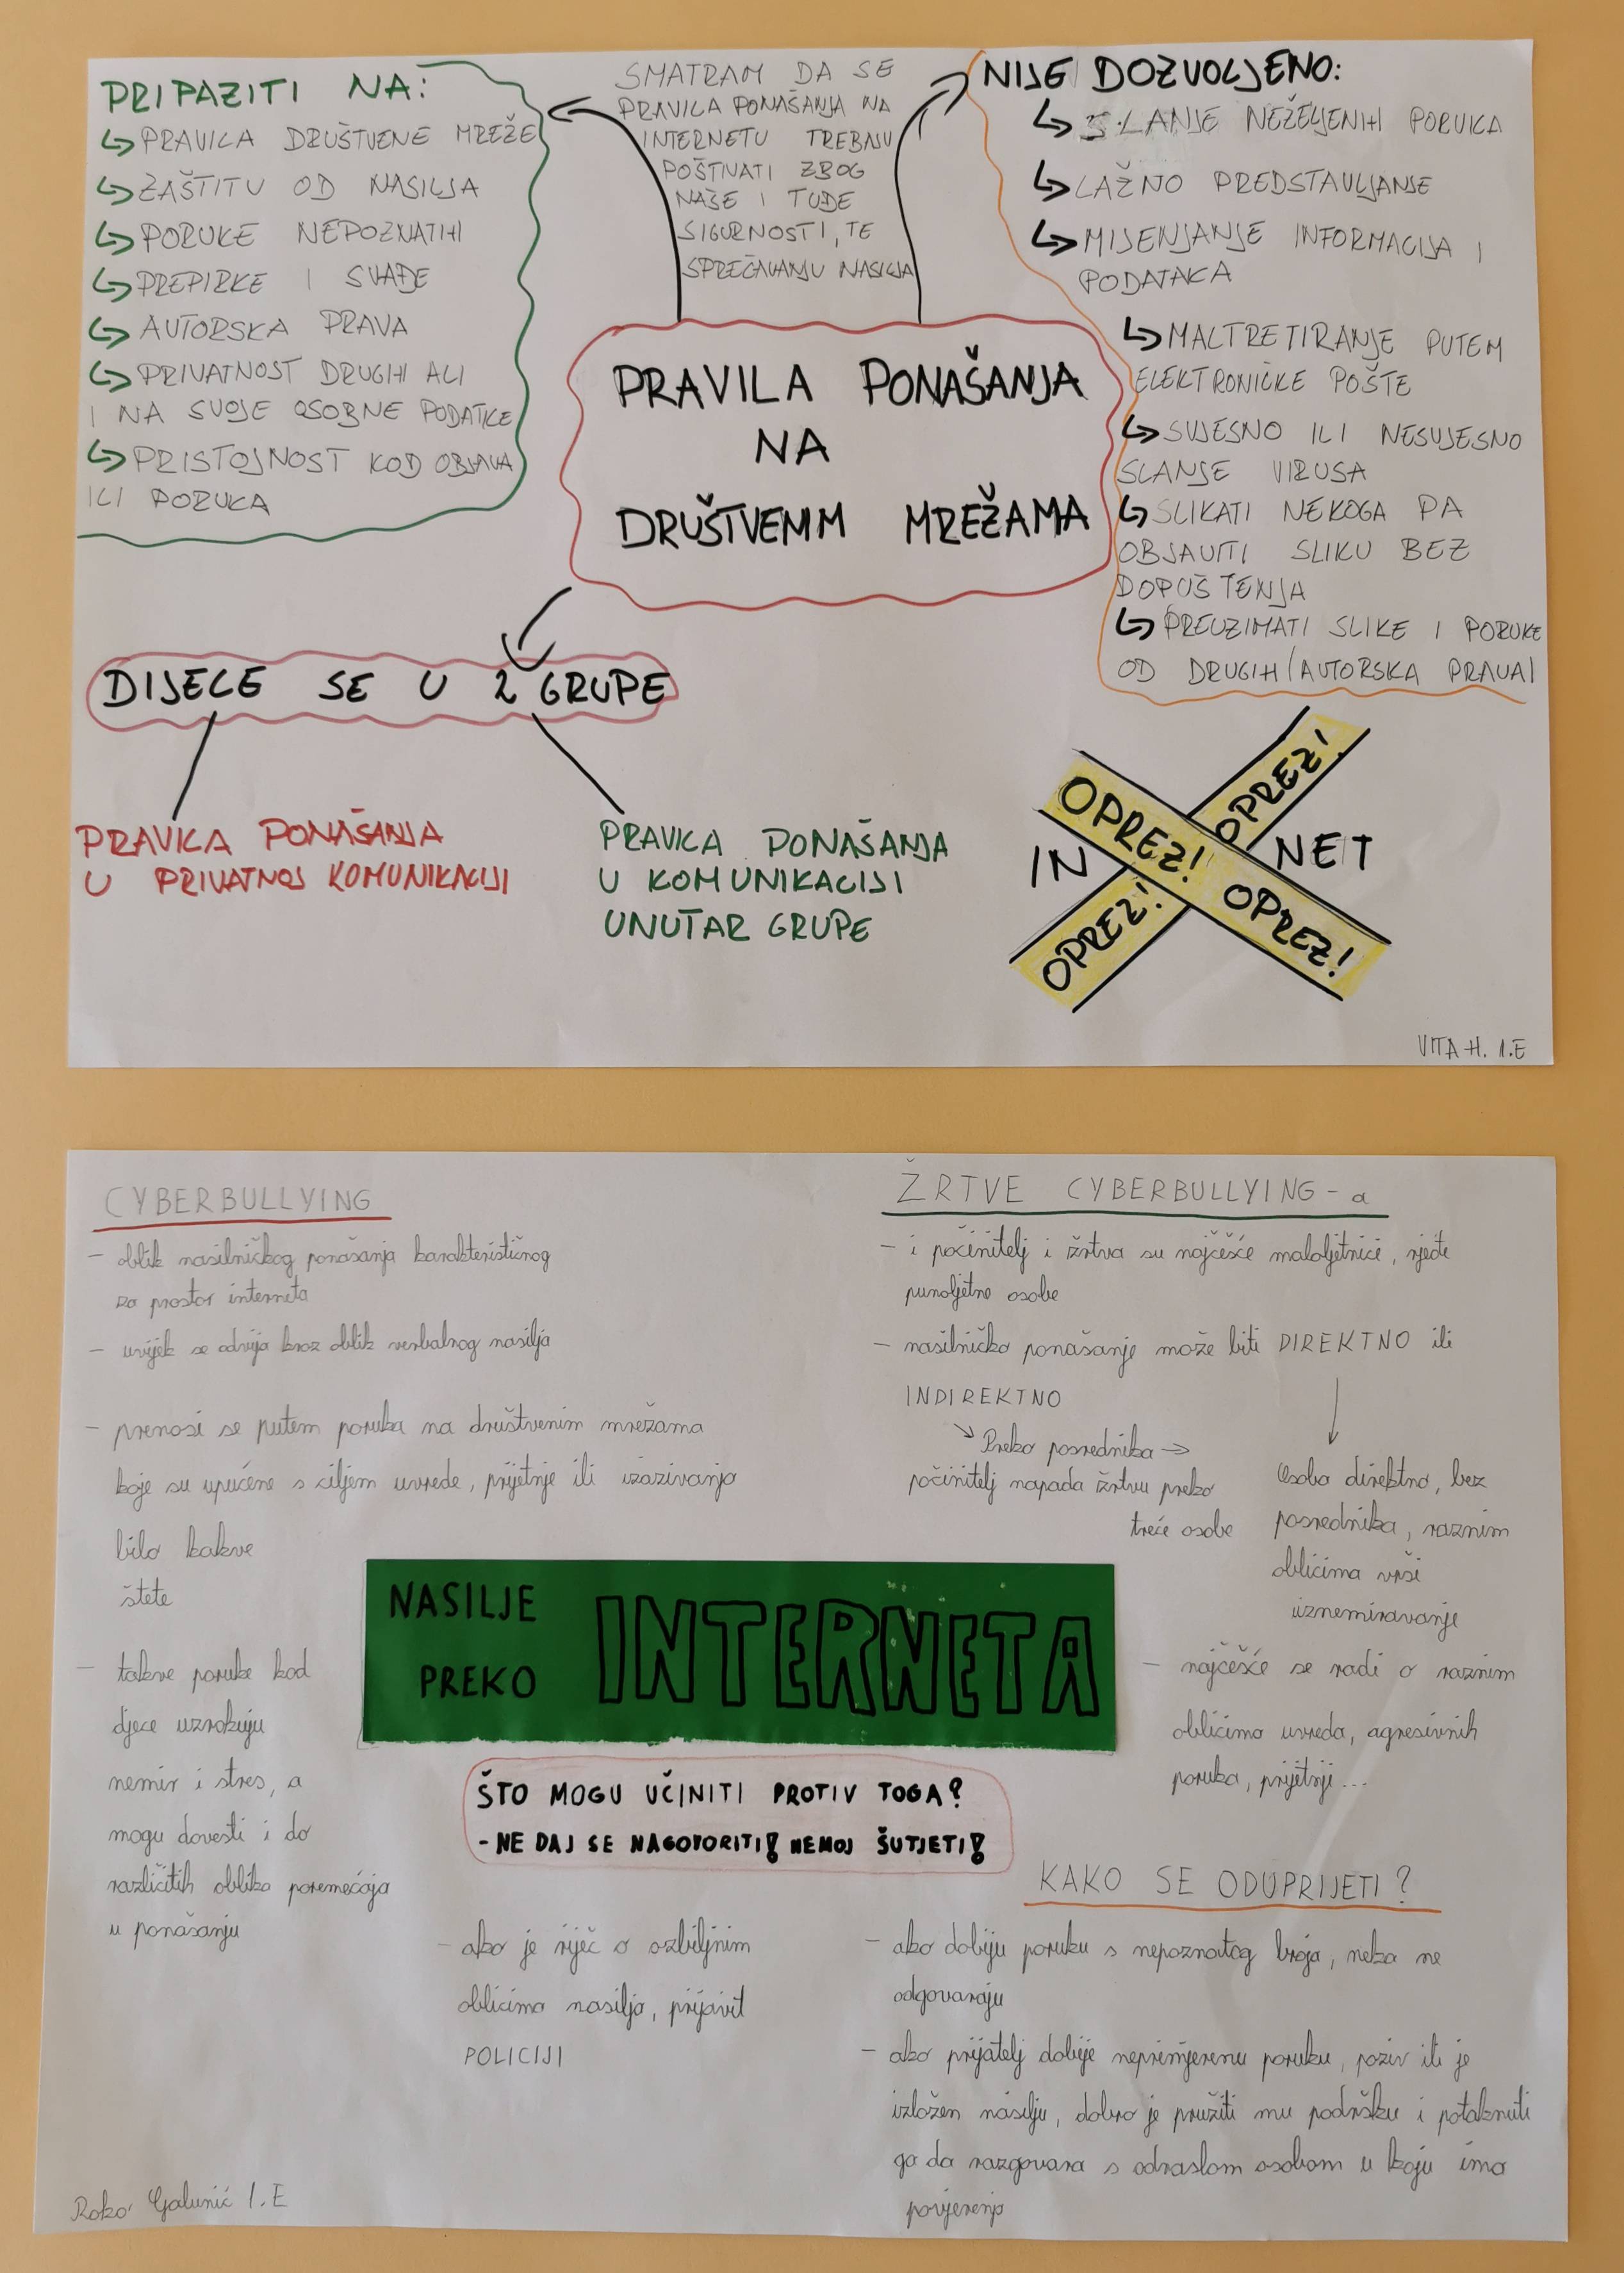 PRIPAZITI NA:
↳ PRAVILA DRUŠTVENE MREŽE
↳ ZAŠTITU OD NASILJA
↳ PORUKE NEPOZNATIH
↳ PREPIRKE I SVAĐE
↳ AUTORSKA PRAVA
↳ PRIVATNOST DRUGIH ALI
I NA SVOJE OSOBNE PODATKE
↳ PRISTOJNOST KOD OBJAVA
ILI PORUKA
SMATRAM DA SE
PRAVILA PONAŠANJA NA
INTERNETU TREBAJU
POŠTIVATI ZBOG
NAŠE I TUĐE
SIGURNOSTI, TE
SPREČAVANJU NASILJA
NIJE DOZVOLJENO:
↳ SLANJE NEŽELJENIH PORUKA
↳ LAŽNO PREDSTAVLJANJE
↳ MIJENJANJE INFORMACIJA I
PODATAKA
↳ MALTRETIRANJE PUTEM
ELEKTRONIČKE POŠTE
↳ SVJESNO ILI NESVJESNO
SLANJE VIRUSA
↳ SLIKATI NEKOGA PA
OBJAVITI SLIKU BEZ
DOPUŠTENJA
↳ PREUZIMATI SLIKE I PORUKE
OD DRUGIH (AUTORSKA PRAVA)
PRAVILA PONAŠANJA
NA
DRUŠTVENIM MREŽAMA
DIJELE SE U 2 GRUPE
PRAVILA PONAŠANJA
U PRIVATNOJ KOMUNIKACIJI
PRAVILA PONAŠANJA
U KOMUNIKACIJI
UNUTAR GRUPE
OPREZ! OPREZ!
IN NET
OPREZ! OPREZ!
VITA H. 1.E
CYBERBULLYING
- oblik nasilničkog ponašanja karakterističnog
za prostor interneta
- uvijek se odvija kroz oblik verbalnog nasilja
- prenosi se putem poruka na društvenim mrežama
koje su upućene s ciljem uvrede, prijetnje ili izazivanja
bilo kakve
štete
- takve poruke kod
djece uzrokuju
nemir i stres, a
mogu dovesti i do
različitih oblika poremećaja
u ponašanju
ŽRTVE CYBERBULLYING-a
- i počinitelj i žrtva su najčešće maloljetnici, rjeđe
punoljetne osobe
- nasilničko ponašanje može biti DIREKTNO ili
INDIREKTNO
↘ Preko posrednika →
počinitelj napada žrtvu preko
treće osobe
Osoba direktno, bez
posrednika, raznim
oblicima vrši
uznemiravanje
- najčešće se radi o raznim
oblicima uvreda, agresivnih
poruka, prijetnji...
NASILJE
PREKO INTERNETA
ŠTO MOGU UČINITI PROTIV TOGA?
- NE DAJ SE NAGOVORITI! NEMOJ ŠUTJETI!
- ako je riječ o ozbiljnim
oblicima nasilja, prijavit
POLICIJI
KAKO SE ODUPRIJETI?
- ako dobiju poruku s nepoznatog broja, neka ne
odgovaraju
- ako prijatelj dobije neprimjerenu poruku, poziv ili je
izložen nasilju, dobro je pružiti mu podršku i potaknuti
ga da razgovara s odraslom osobom u koju ima
povjerenja
Roko Galunić 1.E